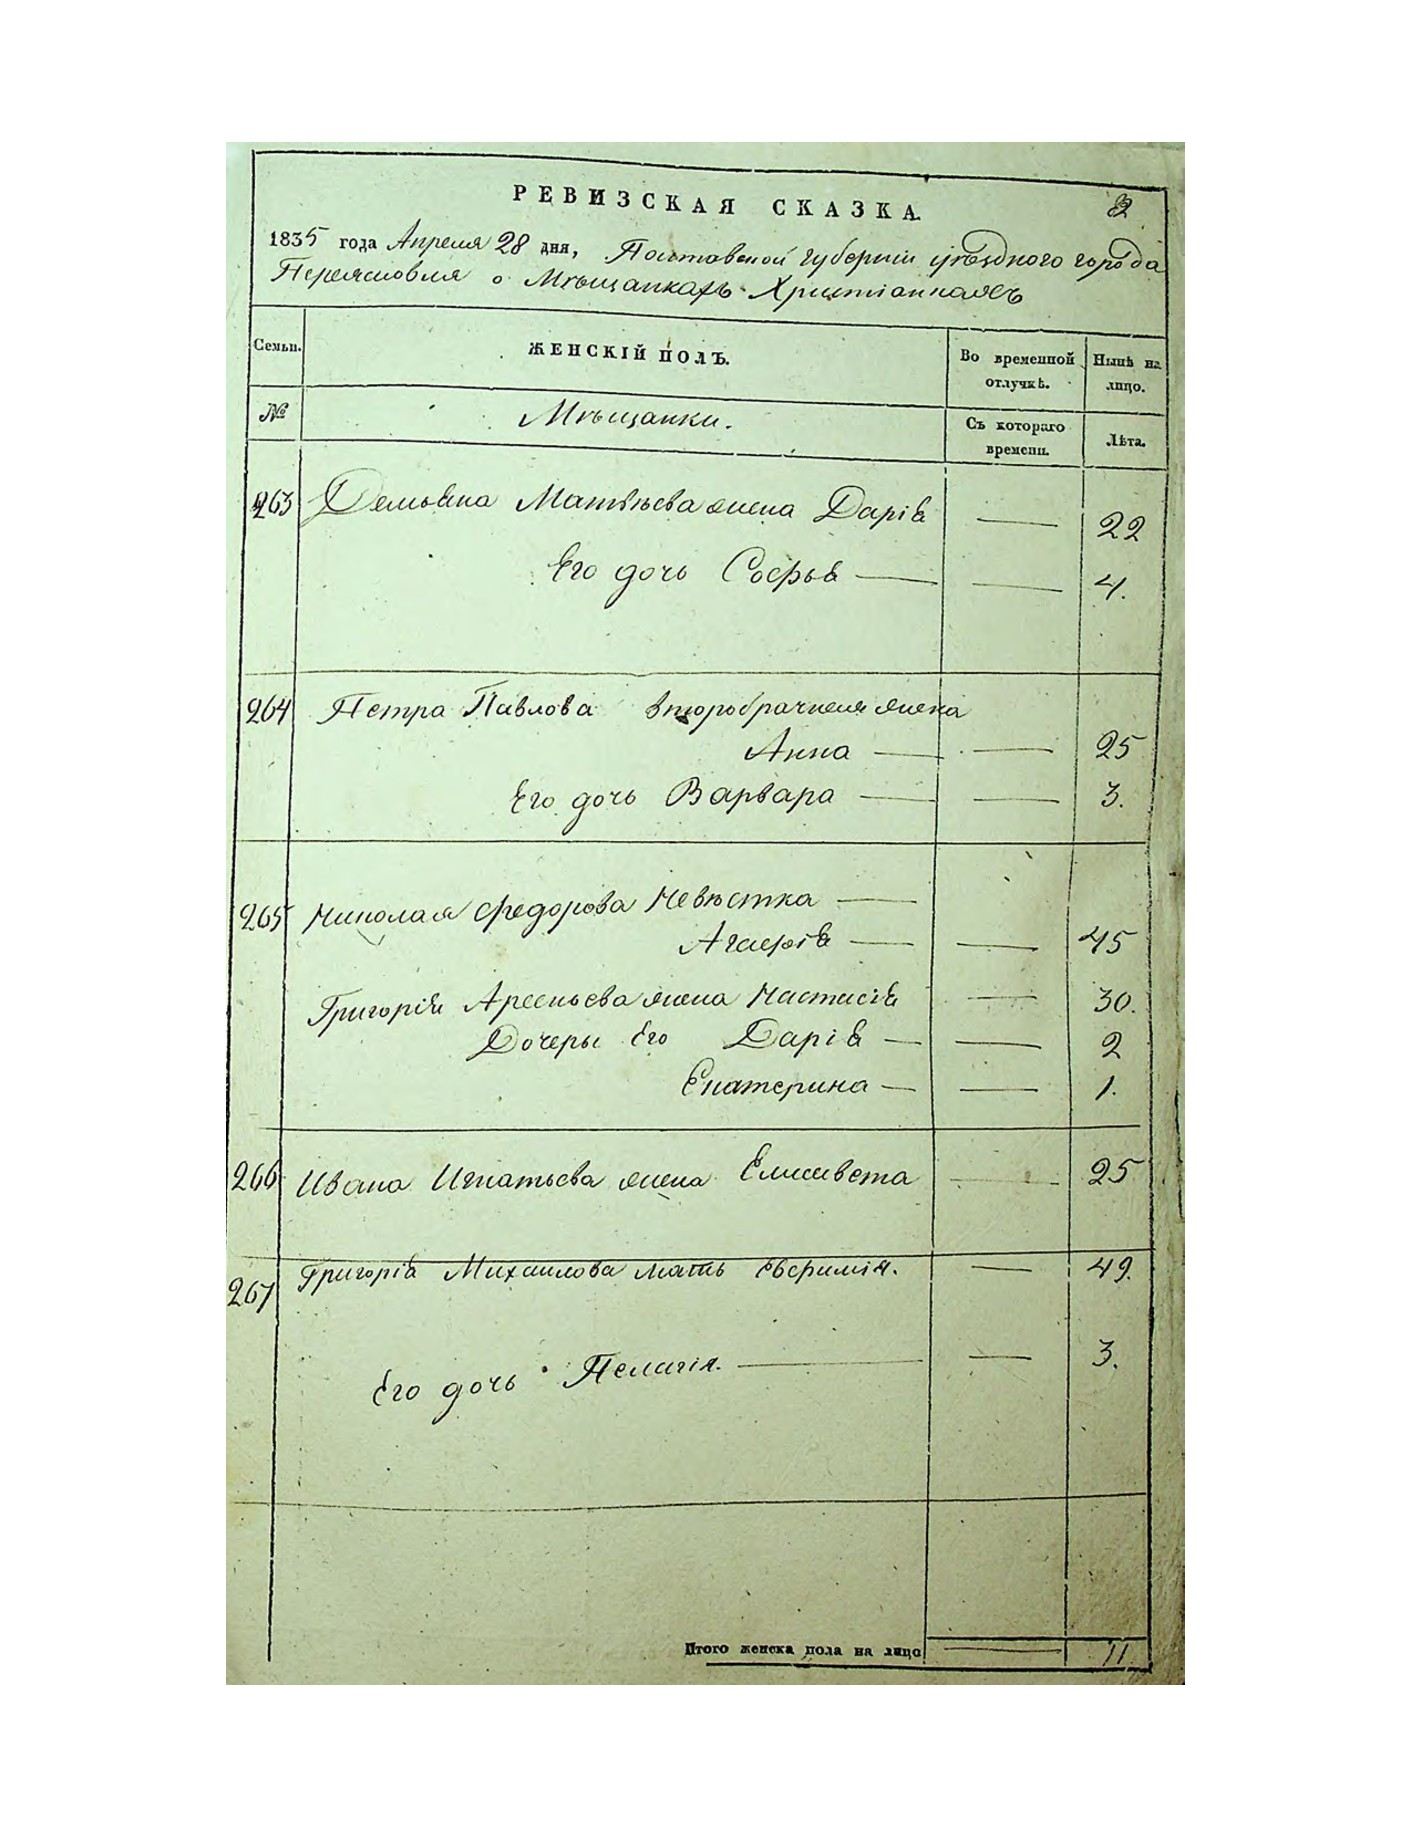 РЕВИЗСКАЯ СКАЗКА.
1835 года Апреля 28 дня, Полтавской губернии уѣзднаго города
Переяславля о Мѣщанкахъ Христіанкахъ
Семьи. ЖЕНСКІЙ ПОЛЪ. Во временной отлучкѣ. Нынѣ на лицо.
№ Мѣщанки. Съ котораго времени. Лѣта.
263 Демьяна Матвѣева жена Дарія — 22
Его дочь Софья — — 4.
264 Петра Павлова второбрачная жена
Анна — — 25
Его дочь Варвара — — 3.
265 Николая Федорова Невѣстка —
Агафія — — 45
Григорія Арсеньева жена Настасія — 30.
Дочеры Его Дарія — — 2
Екатерина — — 1.
266 Ивана Игнатьева жена Елисавета — 25
267 Григорія Михаилова мать Евфимія. — 49.
Его дочь Пелагія. — — 3.
Итого женска пола на лицо — 11